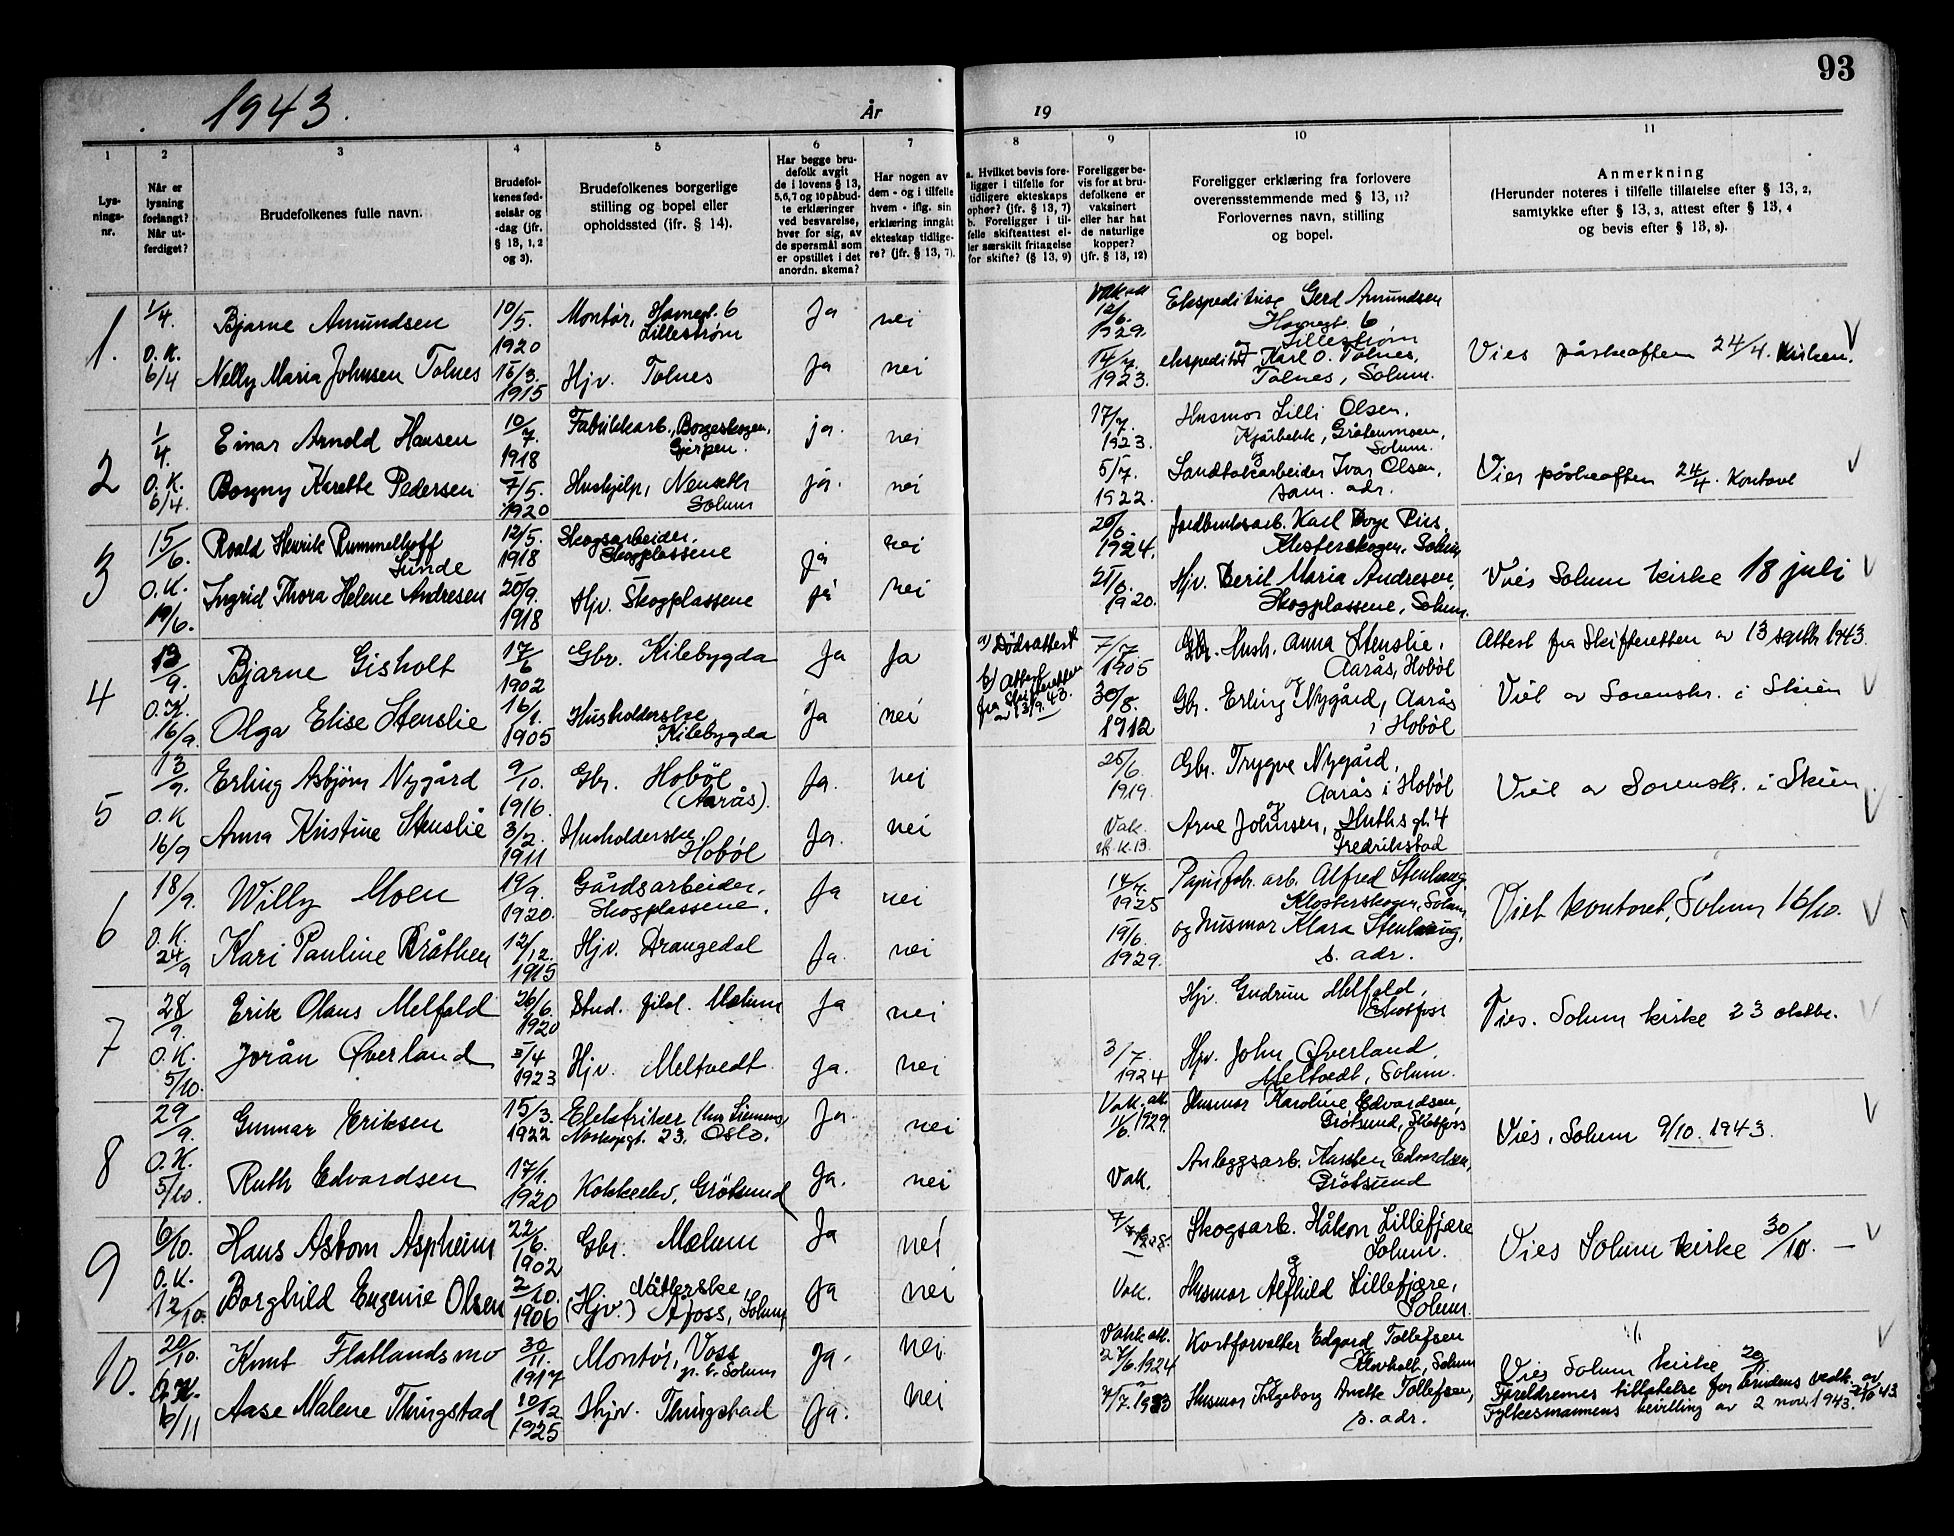 93
1943.
År
19
1
2
3
4
5
6
7
8
9
10
11
Lys-
nings-
nr.
Når er
lysning
forlangt?
Når ut-
ferdiget?
Brudefolkenes fulle navn.
Brudefol-
kenes fød-
selsår og
-dag (jfr.
§ 13, 1, 2
og 3).
Brudefolkenes borgerlige
stilling og bopel eller
opholdssted (jfr. § 14).
Har begge bru-
defolk avgit
de i lovens § 13,
5,6,7 og 10 påbud-
te erklæringer
ved besvarelse,
hver for sig, av
de spørsmål som
er opstillet i det
anordn. skema?
Har nogen av
dem - og i tilfelle
hvem - iflg. sin
erklæring inngått
ekteskap tidlige-
re? (jfr. § 13, 7).
a. Hvilket bevis fore-
ligger i tilfelle for
tidligere ekteskaps
ophør? (jfr. § 13, 7)
b. Foreligger i til-
felle skifteattest el-
ler særskilt fritagelse
for skifte? (§ 13, 9)
Foreligger be-
vis for at bru-
defolkene er
vaksinert
eller har hat
de naturlige
kopper?
(jfr. § 13, 12)
Foreligger erklæring fra forlovere
overensstemmende med § 13, 11?
Forlovernes navn, stilling
og bopel.
Anmerkning
(Herunder noteres i tilfelle tillatelse efter § 13, 2,
samtykke efter § 13, 3, attest efter § 13, 4
og bevis efter § 13, 8).
1.
1/4.
O.K.
6/4
Bjarne Amundsen
10/5.
1920
Montør, Havnegt. 6
Lillestrøm
Ja
nei
Vak att
12/6.
1929.
Ekspeditrise Gerd Amundsen
Havnegt. 6
Lillestrøm
Nelly Maria Johnsen Tolnes
15/3.
1915
Hjv. Tolnes
Ja
nei
14/7.
1923.
og
ekspeditør Karl O. Tolnes,
Tolnes, Solum.
Vies påskeaften 24/4. Kirken.
2
1/4.
O.K.
6/4.
Einar Arnold Hansen
10/7.
1918
Fabrikkarb., Borgeskogen,
Gjerpen.
ja.
nei
17/7.
1923.
Husmor Lilli Olsen,
Kjærbekk, Gråtenmoen,
Solum.
Borgny Karette Pedersen
7/5.
1920
Hushjelp, Nenseth
Solum
ja.
nei
5/7.
1922.
og
Sandtakarbeider Ivar Olsen,
sam. adr.
Vies påskeaften 24/4. Kontoret
3
15/6.
O.K.
19/6.
Roald Henrik Rummelhoff
Sunde
12/5.
1918
Skogsarbeider,
Skogplassene
ja
nei
1924.
Jordbruksarb. Karl Borge Riis,
Klosterskogen, Solum
Ingrid Thora Helene Andresen
20/9.
1918
Hjv. Skogplassene
ja
nei
21/6.
1920.
Hjv. Beril Maria Andresen,
Skogplassene, Solum.
Vies Solum kirke 18 juli
4
13/9.
O.K.
16/9.
Bjarne Gisholt
17/6
1902
Gbr. Kilebygda
Ja
Ja
a) Dødsattest
b) Attest
fra Skifteretten
av 13/9.43.
7/7.
1905
Gbr. Hush. Anna Stenslie,
Aarås, Hobøl
Attest fra Skifteretten av 13 septbr 1943.
Olga Elise Stenslie
16/1.
1905
Husholderske,
Kilebygda
Ja
nei
30/8.
1912
og
Gbr. Erling Nygård, Aarås
i Hobøl
Viet av Sorenskr. i Skien
5
13/9.
O.K
16/9
Erling Asbjørn Nygård
9/10.
1916.
Gbr. Hobøl
(Aarås).
Ja.
nei
25/6.
1919.
Gbr. Trygve Nygård,
Aarås i Hobøl
Anna Kristine Stenslie
3/2.
1911
Husholderske
Hobøl
Ja.
nei
Vak.
og
Arne Johnsen, Huths gt. 4
Fredrikstad
Viet av Sorenskr. i Skien.
6
18/9.
O.K.
24/9
Willy Moen
19/9.
1920.
Gårdsarbeider,
Skogplassene.
Ja
nei
14/7.
1925
Papirfabr. arb. Alfred Stenhaug
Klosterskogen, Solum
Kari Pauline Bråthen
12/12.
1915
Hjv. Drangedal
Ja.
nei
19/6.
1929.
og husmor Klara Stenhaug,
s. adr.
Viet kontoret, Solum 16/10.
7
28/9.
O.K.
5/10.
Erik Olaus Melfald
26/6.
1920
Stud. filol. Mælum
Ja
nei
Hjv. Gudrun Melfald,
Skotfoss
Jorån Øverland
5/4
1923
Hjv. Meltvedt
Ja.
nei
3/7.
1924
Hjv. John Øverland,
Meltvedt, Solum.
Vies. Solum kirke 23 oktbr.
8
29/9.
O.K.
5/10.
Gunnar Eriksen
15/3.
1922
Elektriker (hos Siemens
23, Oslo.
Ja.
nei
Vak. att.
11/6. 1929.
Husmor Karoline Edvardsen,
Grøtsund, Skotfoss
Ruth Edvardsen
17/1.
1920
Kokkeelev, Grøtsund
Ja.
nei
Vak.
Anleggsarb. Karsten Edvardsen,
Grøtsund
Vies, Solum 9/10. 1943.
9
6/10.
O.K.
12/10.
Hans Astom Aspheim
22/6.
1902
Gbr. Mælum
Ja
nei
Skogsarb. Håkon Lillefjære
Solum.
Borghild Eugenie Olsen
2/10.
1906
Nåtterske,
(Hjv.) Åfoss, Solum
Ja
nei
Vak.
og
Husmor Alfhild Lillefjære,
Solum.
Vies Solum kirke 30/10. —
10.
20/10.
O.K.
6/11
Knut Flatlandsmo
30/11.
1917
Montør, Voss
p. t. Solum
Ja.
nei
Vakk att.
27/6.1924
Kortforvalter Edgard Tollefsen
Klovholt, Solum
Aase Malene Thingstad
10/12
1925
Hjv. Thingstad
Ja.
nei
7/7.1933
Husmor Ingeborg Anette Tollefsen,
s. adr.
Vies Solum kirke 20/11.
Foreldrenes tillatelse for brudens vedk. av
Fylkesmannens bevilling av 2 nov. 1943.